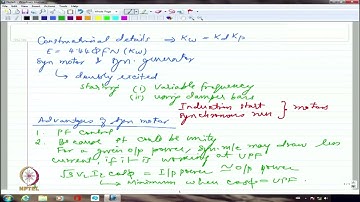 Constructional details ⇒ Kw = Kd Kp
E = 4.44 Φ f N (Kw)
Syn motor & Syn. generator
↳ doubly excited
starting (i) variable frequency
(ii) using damper bars
Induction start
Synchronous run } motors
Advantages of Syn motor
1. PF control
2. Because pf could be unity,
For a given o/p power, Syn. m/c may draw less
current, if it is working at UPF.
√3 VL IL cosφ = I/p power ≈ o/p power
↳ minimum when cosφ = UPF.
NPTEL